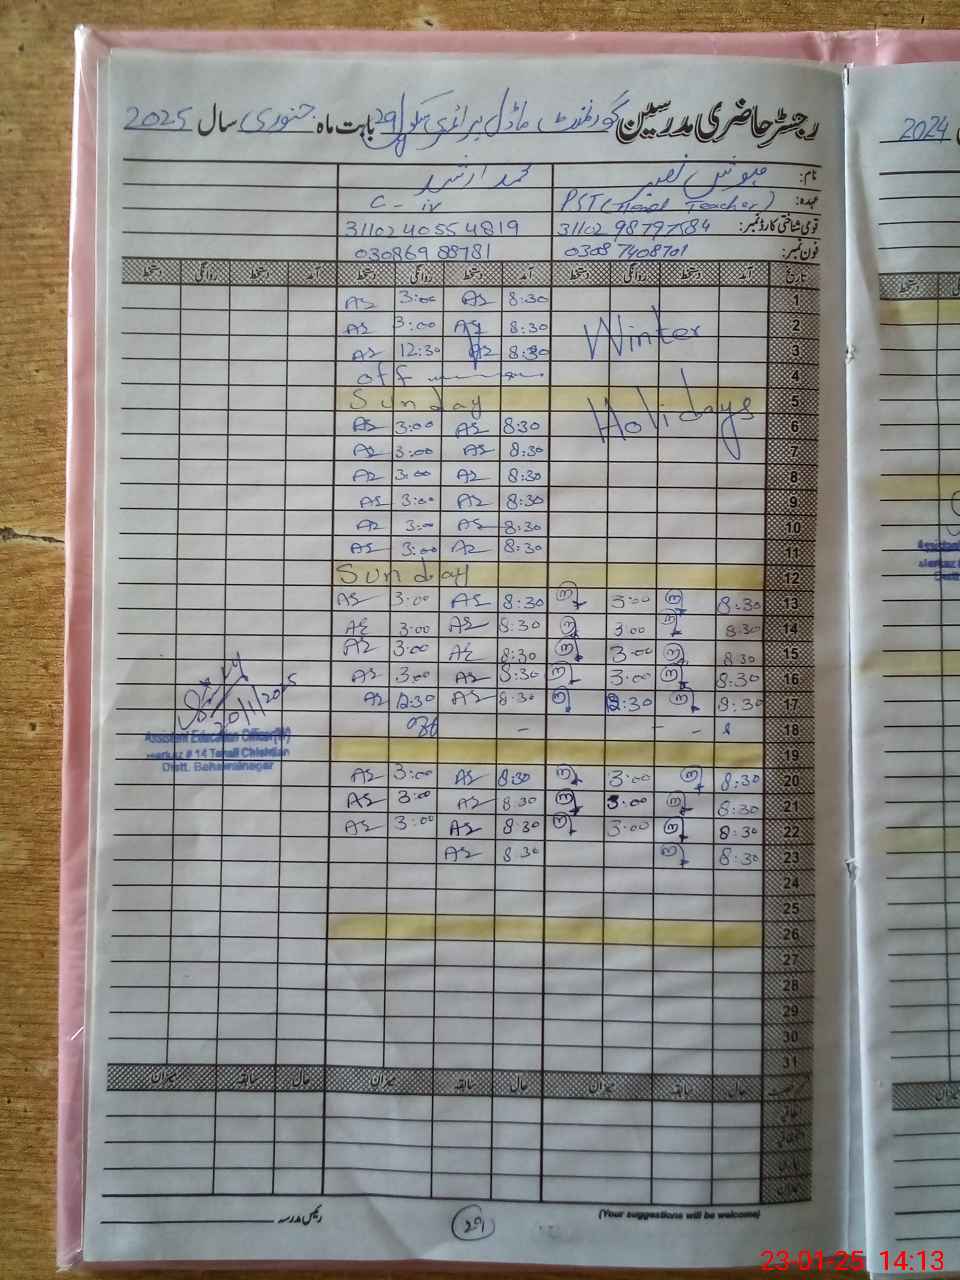 رجسٹر حاضری مدرسین گورنمنٹ ماڈل پرائمری سکول 29 بابت ماہ جنوری سال 2025
نام: مہوش نصیر محمد ارشد
عہدہ: PST (Head Teacher) C-iv
قومی شناختی کارڈ نمبر: 31102 98797584 31102 4055 4819
فون نمبر: 0308 7408701 030869 88781
تاریخ آمد دستخط روانگی دستخط آمد دستخط روانگی دستخط آمد دستخط روانگی دستخط
1 8:30 AS 3:00 AS
2 Winter 8:30 AS 3:00 AS
3 8:30 AS 12:30 AS
4 off
5 Holidays Sunday
6 8:30 AS 3:00 AS
7 8:30 AS 3:00 AS
8 8:30 AS 3:00 AS
9 8:30 AS 3:00 AS
10 8:30 AS 3:00 AS
11 8:30 AS 3:00 AS
12 Sunday
13 8:30 3:00 8:30 AS 3:00 AS
14 8:30 3:00 8:30 AS 3:00 AS
15 8:30 3:00 8:30 AS 3:00 AS
16 8:30 3:00 8:30 AS 3:00 AS
17 8:30 12:30 8:30 AS 12:30 AS
18
19
20 8:30 3:00 8:30 AS 3:00 AS
21 8:30 3:00 8:30 AS 3:00 AS
22 8:30 3:00 8:30 AS 3:00 AS
23 8:30 8:30 AS
24
25
26
27
28
29
30
31
20/1/2025
Assistant Education Officer(W)
Markaz # 14 Tehsil Chishtian
Distt. Bahawalnagar
حال سابقہ میزان حال سابقہ میزان حال سابقہ میزان
اتفاقی
رئیس مدرسہ
29
(Your suggestions will be welcome)
2024
23-01-25 14:13